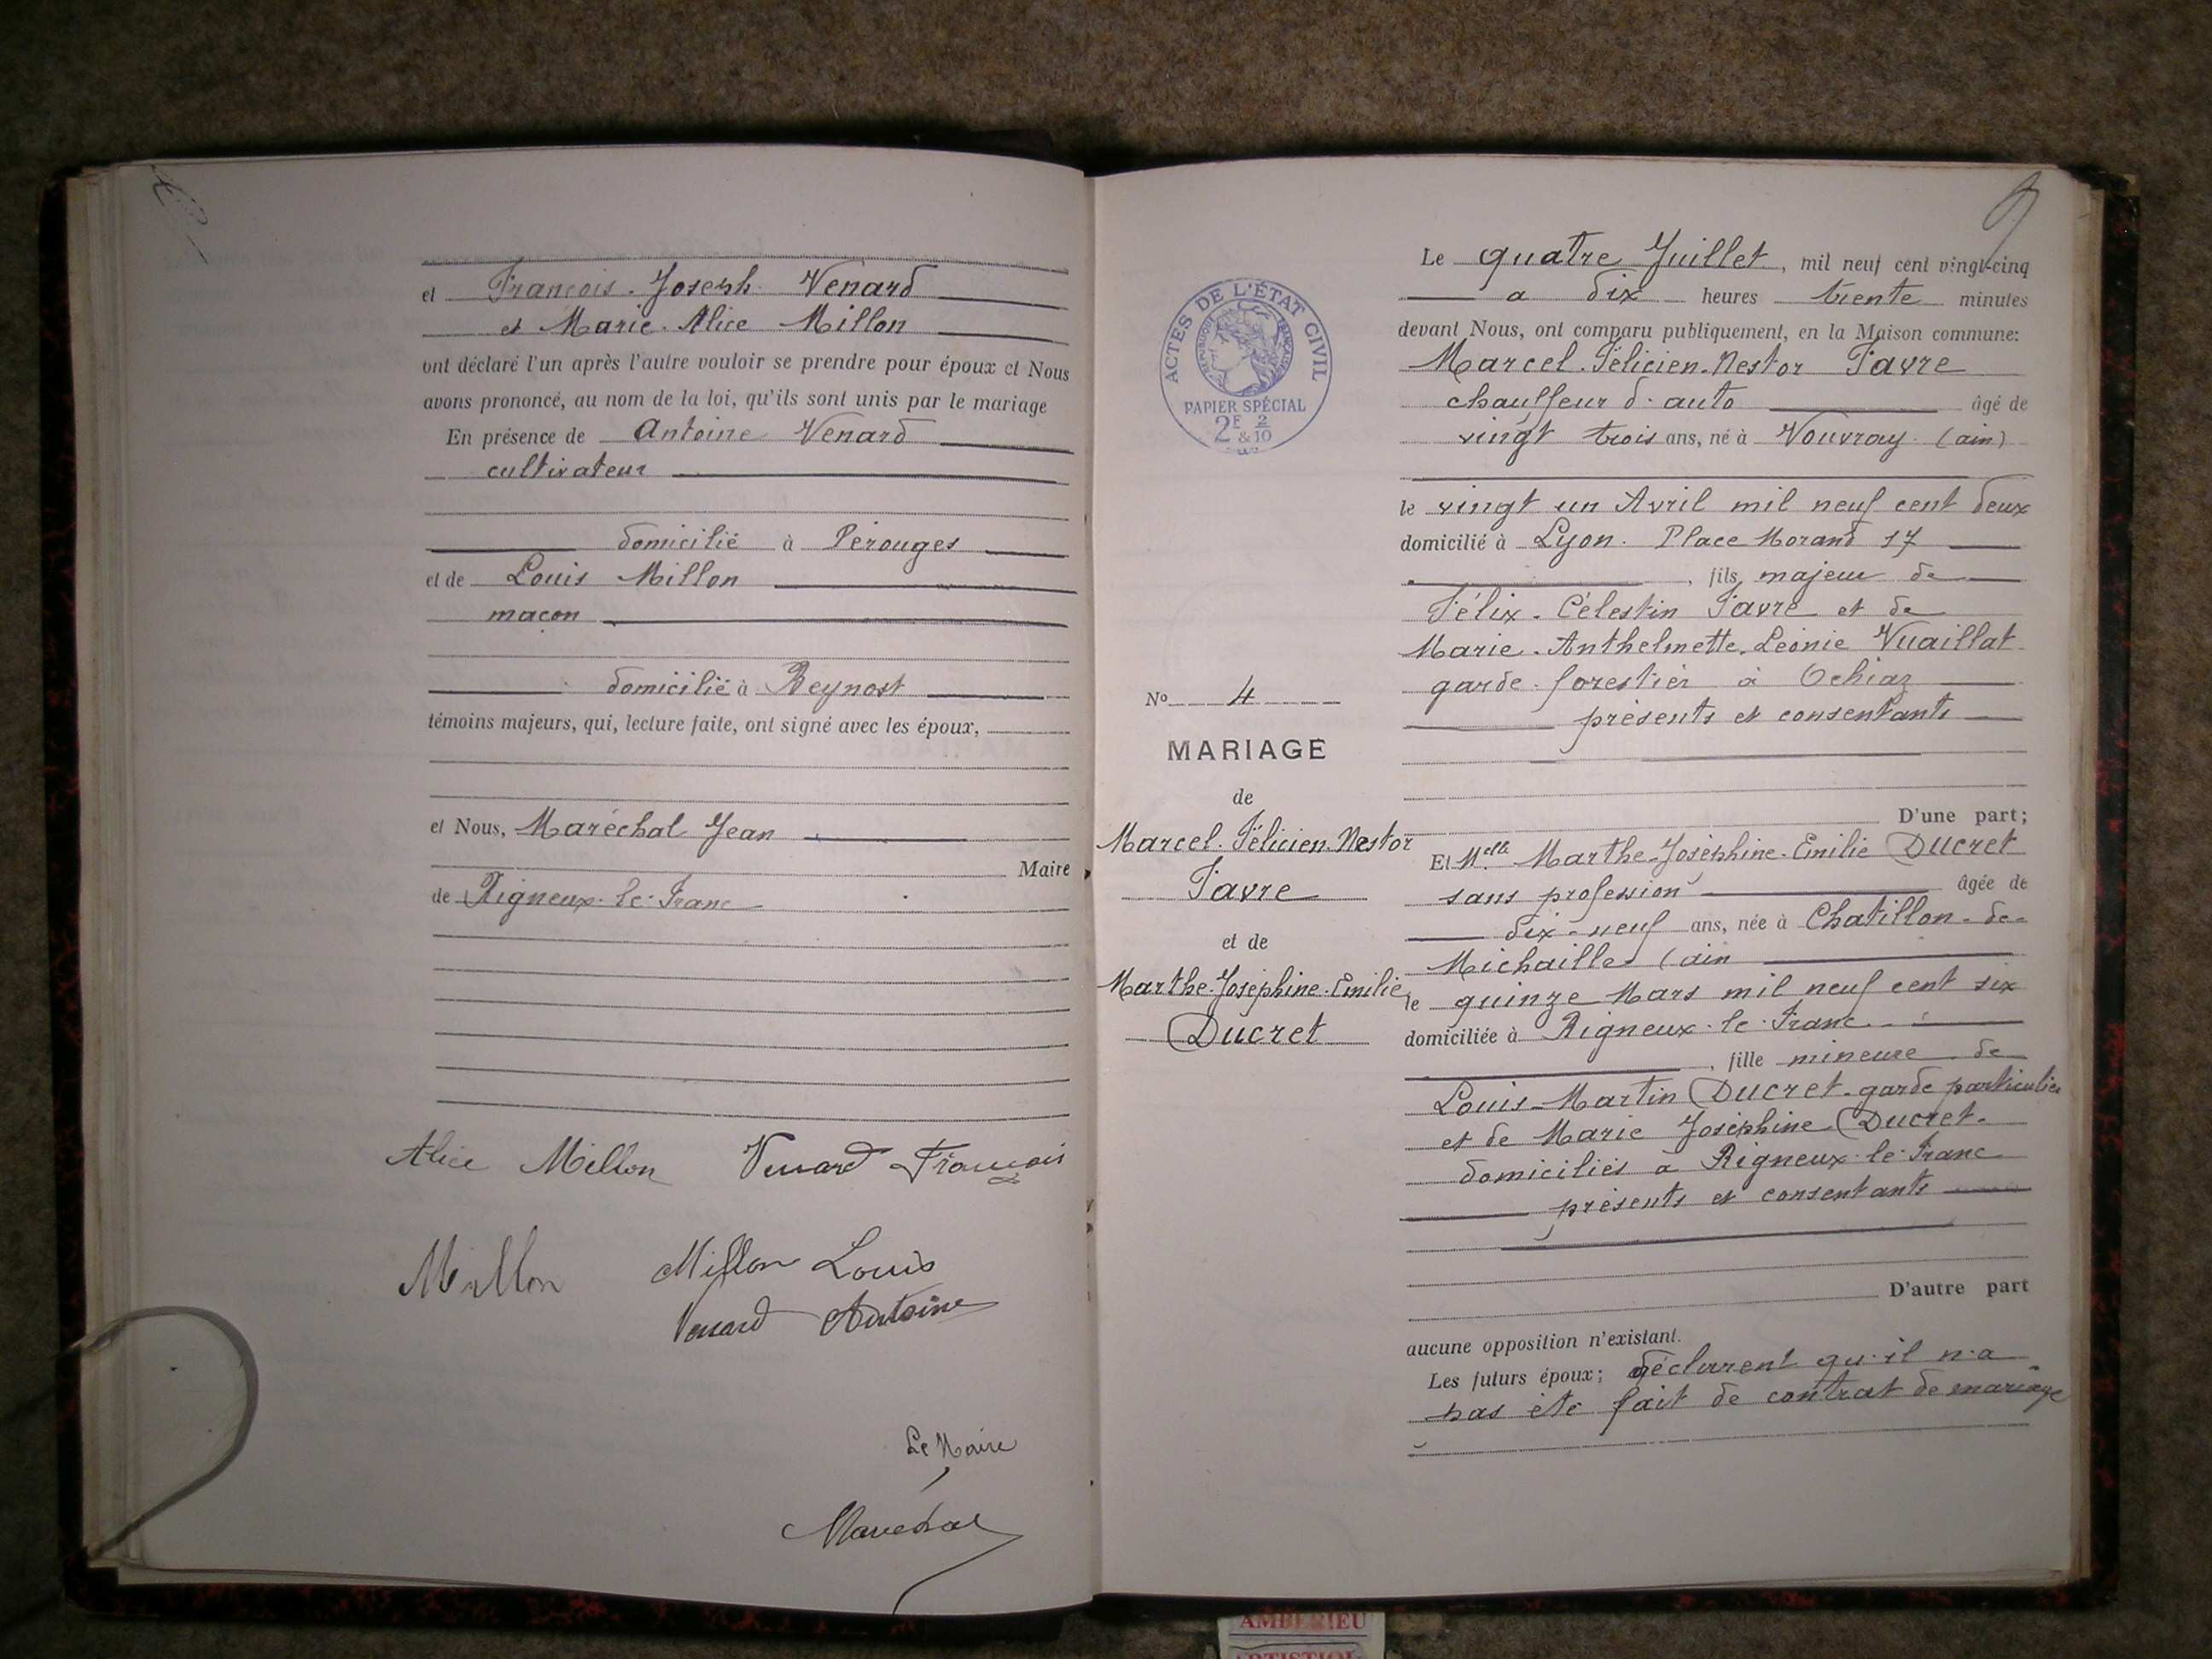 et François-Joseph Venard
et Marie-Alice Millon
ont déclaré l'un après l'autre vouloir se prendre pour époux et Nous
avons prononcé, au nom de la loi, qu'ils sont unis par le mariage
En présence de Antoine Venard
cultivateur
domicilié à Pérouges
et de Louis Millon
maçon
domicilié à Beynost
témoins majeurs, qui, lecture faite, ont signé avec les époux,
et Nous, Maréchal Jean
Maire
de Rigneux-le-Franc
Alice Millon Venard François
Millon Millon Louis
Venard Antoine
Le Maire
Maréchal
9
ACTES DE L'ÉTAT CIVIL
RÉPUBLIQUE FRANÇAISE
PAPIER SPÉCIAL
2F 2
& 10
No 4
MARIAGE
de
Marcel-Félicien-Nestor
Favre
et de
Marthe-Joséphine-Emilie
Ducret
Le quatre Juillet, mil neuf cent vingt-cinq
a dix heures trente minutes
devant Nous, ont comparu publiquement, en la Maison commune:
Marcel-Félicien-Nestor Favre
chauffeur d'auto âgé de
vingt trois ans, né à Vouvray (ain)
le vingt un Avril mil neuf cent deux
domicilié à Lyon. Place Morand 17
, fils majeur de
Félix-Célestin Favre et de
Marie-Anthelmette-Léonie Vuaillat
garde-forestier à Ochiaz
présents et consentants
D'une part;
Et Melle Marthe-Joséphine-Emilie Ducret
sans profession âgée de
dix-neuf ans, née à Chatillon-de-
Michailles (ain
le quinze Mars mil neuf cent six
domiciliée à Rigneux-le-Franc
, fille mineure de
Louis-Martin Ducret-garde particulier
et de Marie Joséphine Ducret-
domiciliés à Rigneux-le-Franc
présents et consentants
D'autre part
aucune opposition n'existant.
Les futurs époux; déclarent qu'il n'a
pas été fait de contrat de mariage
AMBERIEU